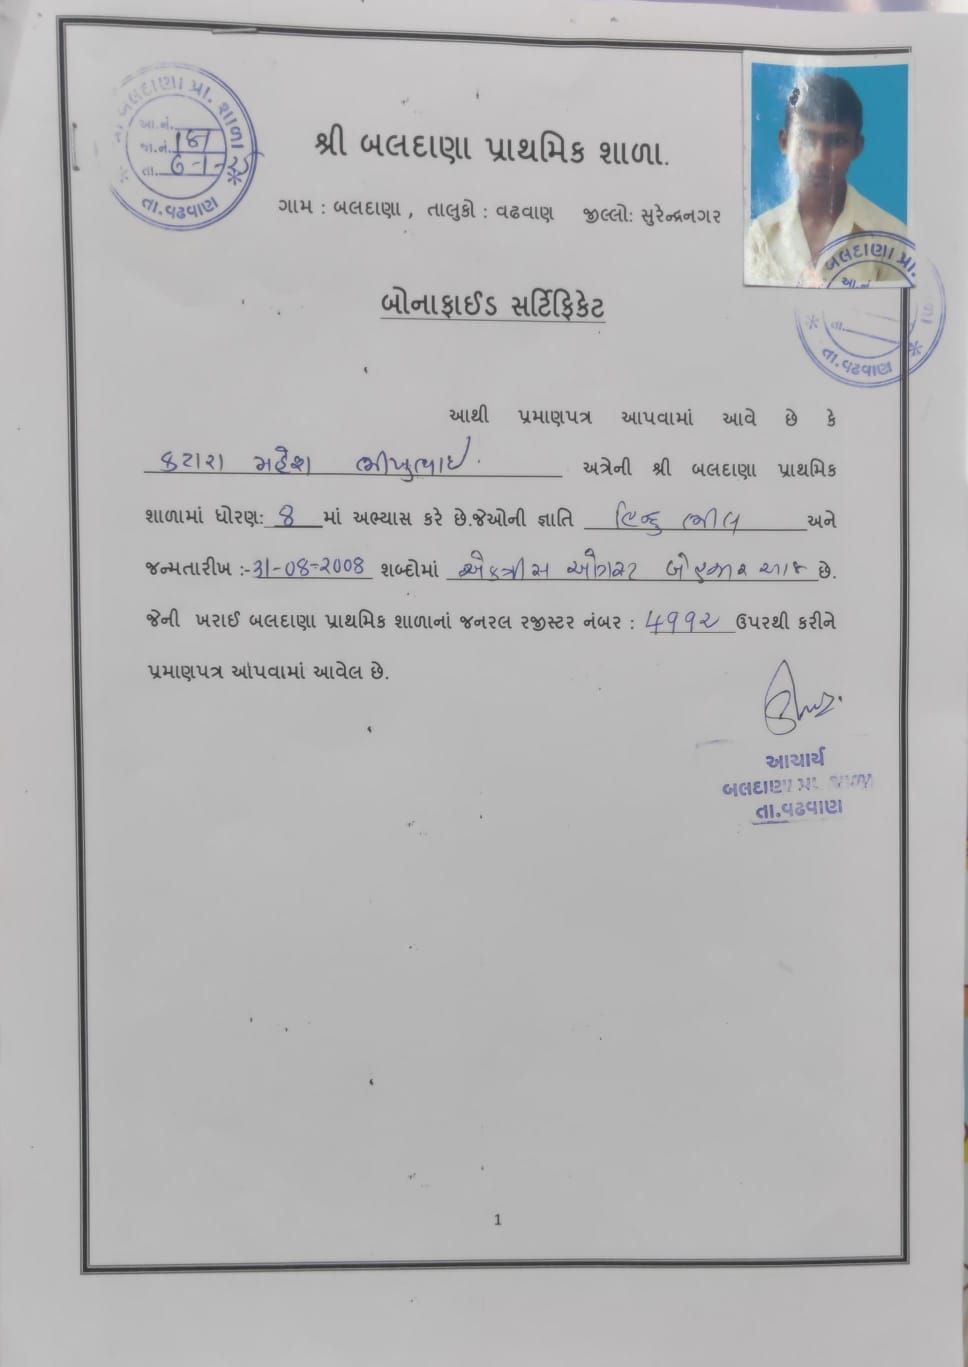 બલદાણા પ્રા. શાળા
આ.નં.
જા.નં.
તા. 6-1-22
તા.વઢવાણ
શ્રી બલદાણા પ્રાથમિક શાળા.
ગામ : બલદાણા , તાલુકો : વઢવાણ જીલ્લો: સુરેન્દ્રનગર
બલદાણા પ્રા.
આ.નં
તા.
તા.વઢવાણ
બોનાફાઈડ સર્ટિફિકેટ
આથી પ્રમાણપત્ર આપવામાં આવે છે કે
કટારા મહેશ ભીખુભાઈ. અત્રેની શ્રી બલદાણા પ્રાથમિક
શાળામાં ધોરણ: 8 માં અભ્યાસ કરે છે.જેઓની જ્ઞાતિ હિન્દુ ભીલ અને
જન્મતારીખ :-31-08-2008 શબ્દોમાં એકત્રીસ ઓગસ્ટ બે હજાર આઠ છે.
જેની ખરાઈ બલદાણા પ્રાથમિક શાળાનાં જનરલ રજીસ્ટર નંબર : ૪૧૧૨ ઉપરથી કરીને
પ્રમાણપત્ર આપવામાં આવેલ છે.
આચાર્ય
બલદાણા પ્રા. શાળા
તા.વઢવાણ
1